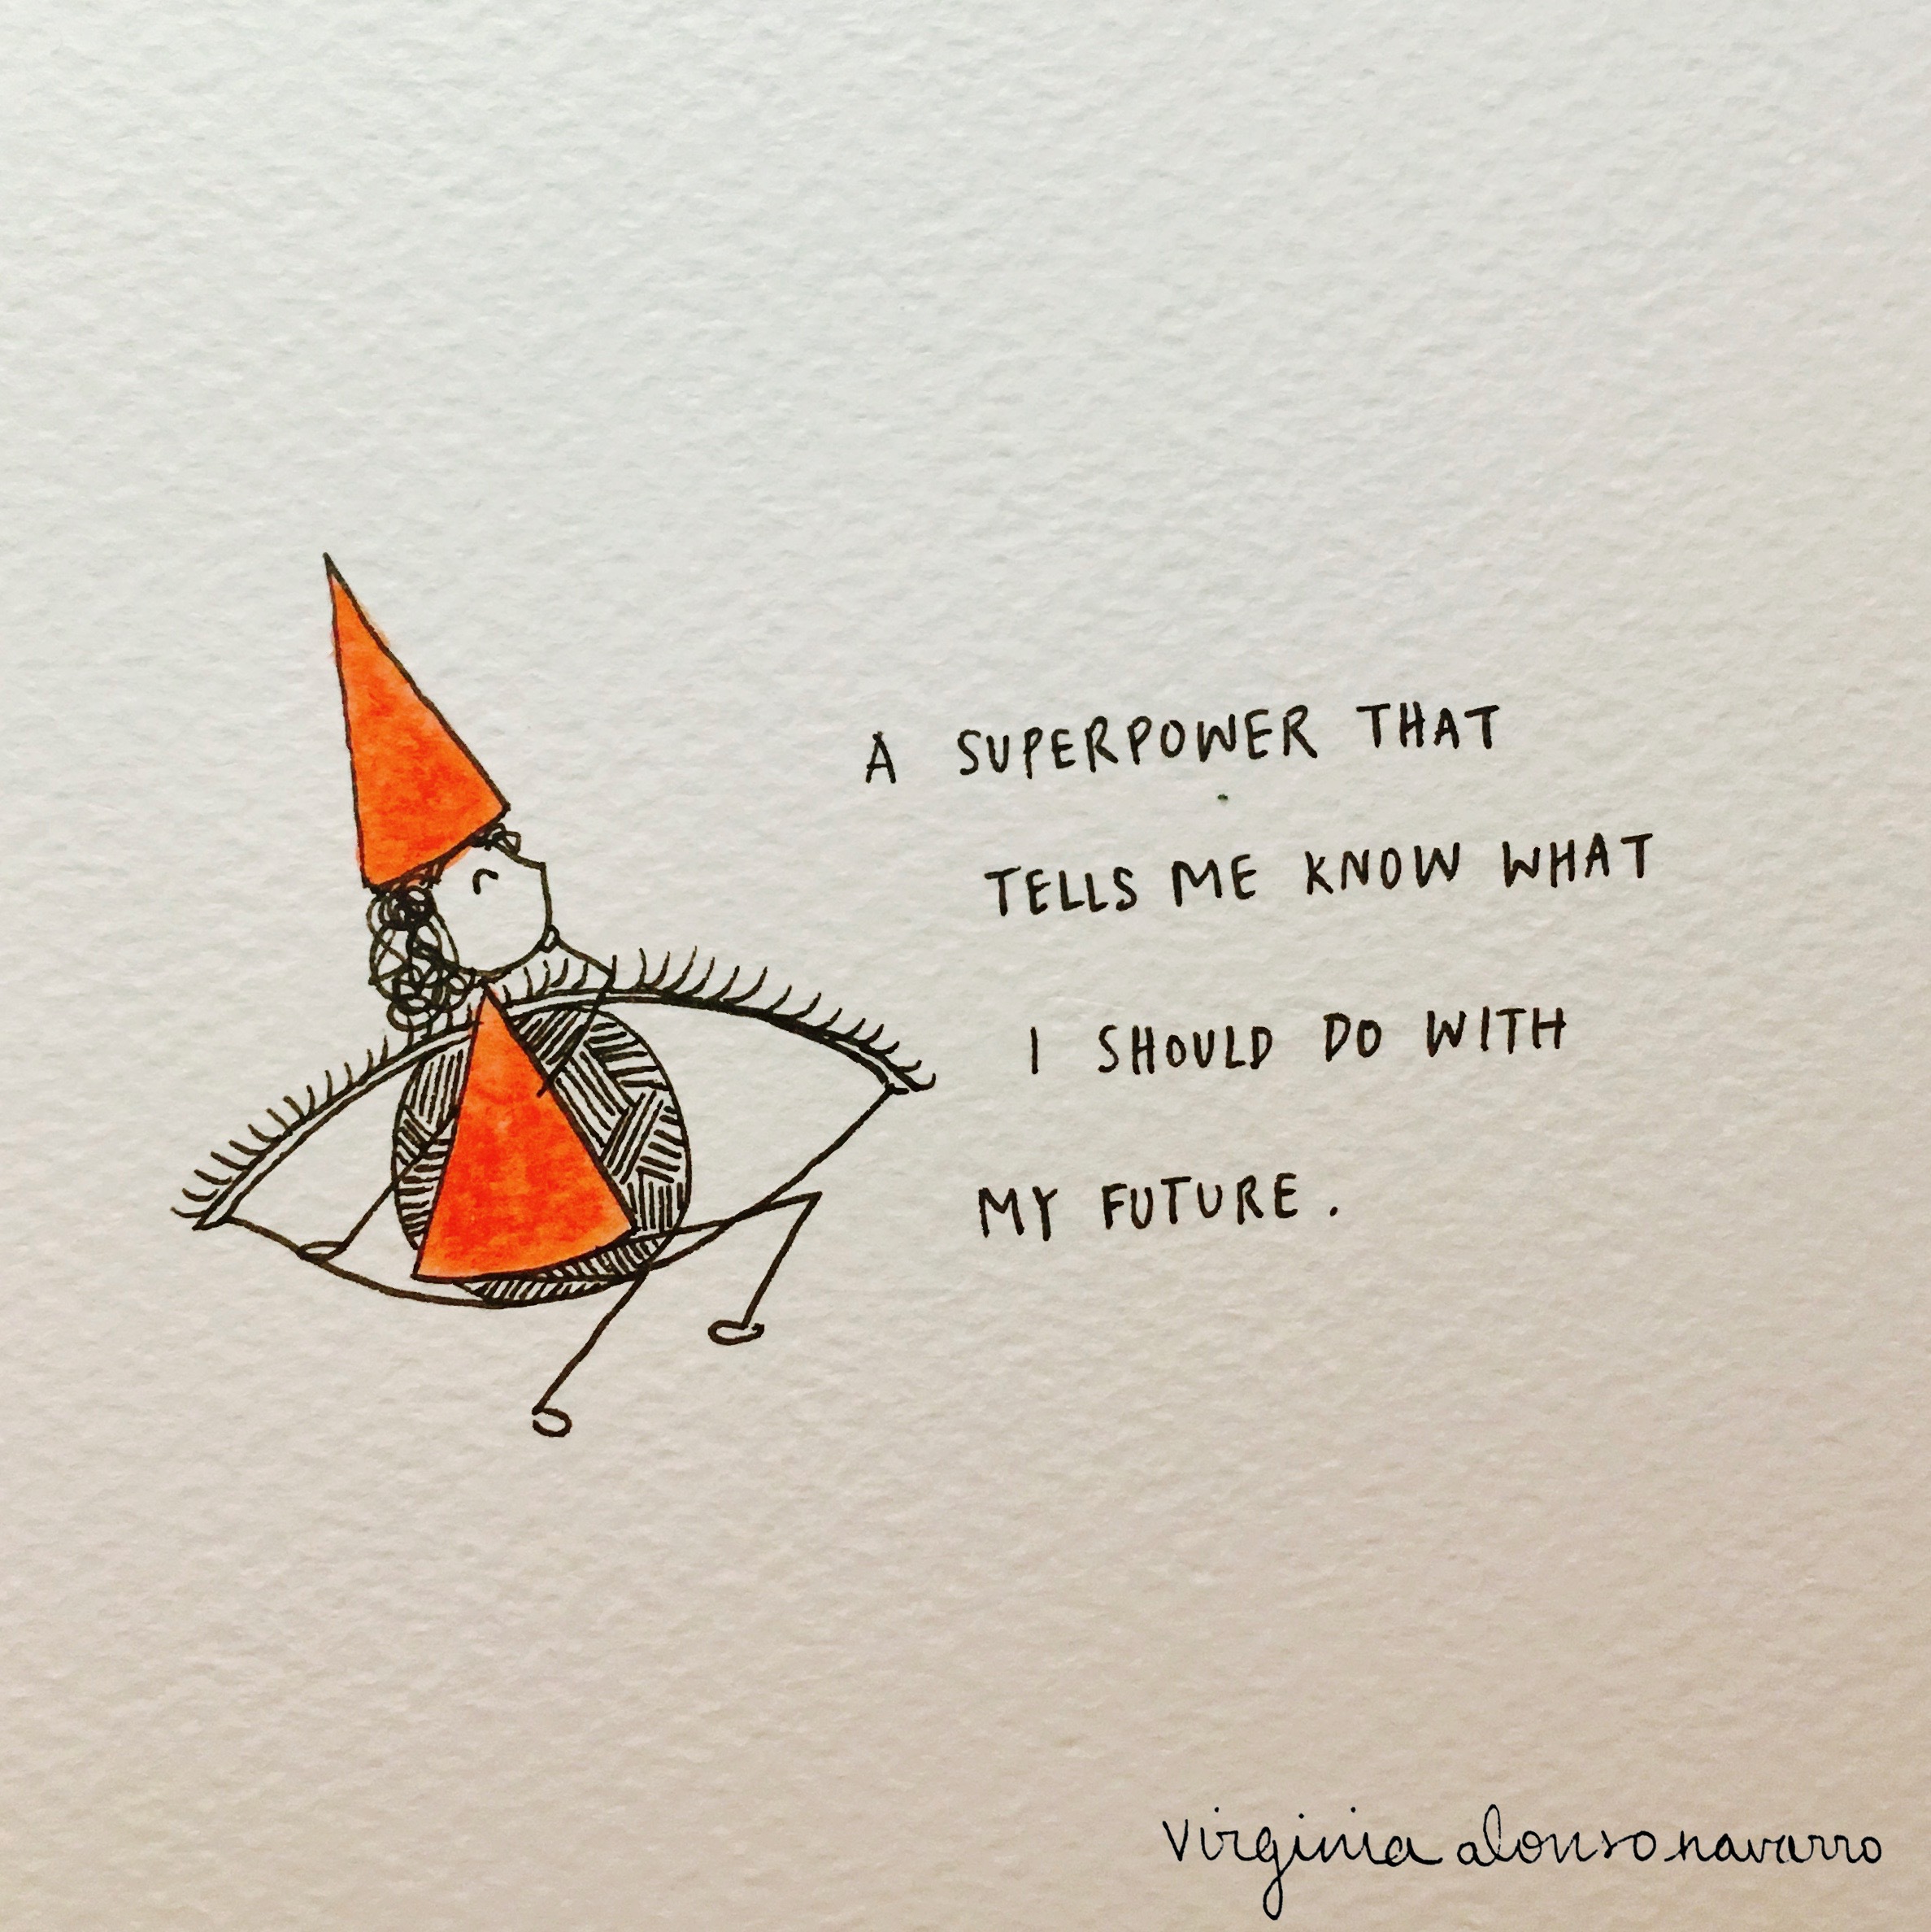 A SUPERPOWER THAT
TELLS ME KNOW WHAT
I SHOULD DO WITH
MY FUTURE.
Virginia alonso navarro